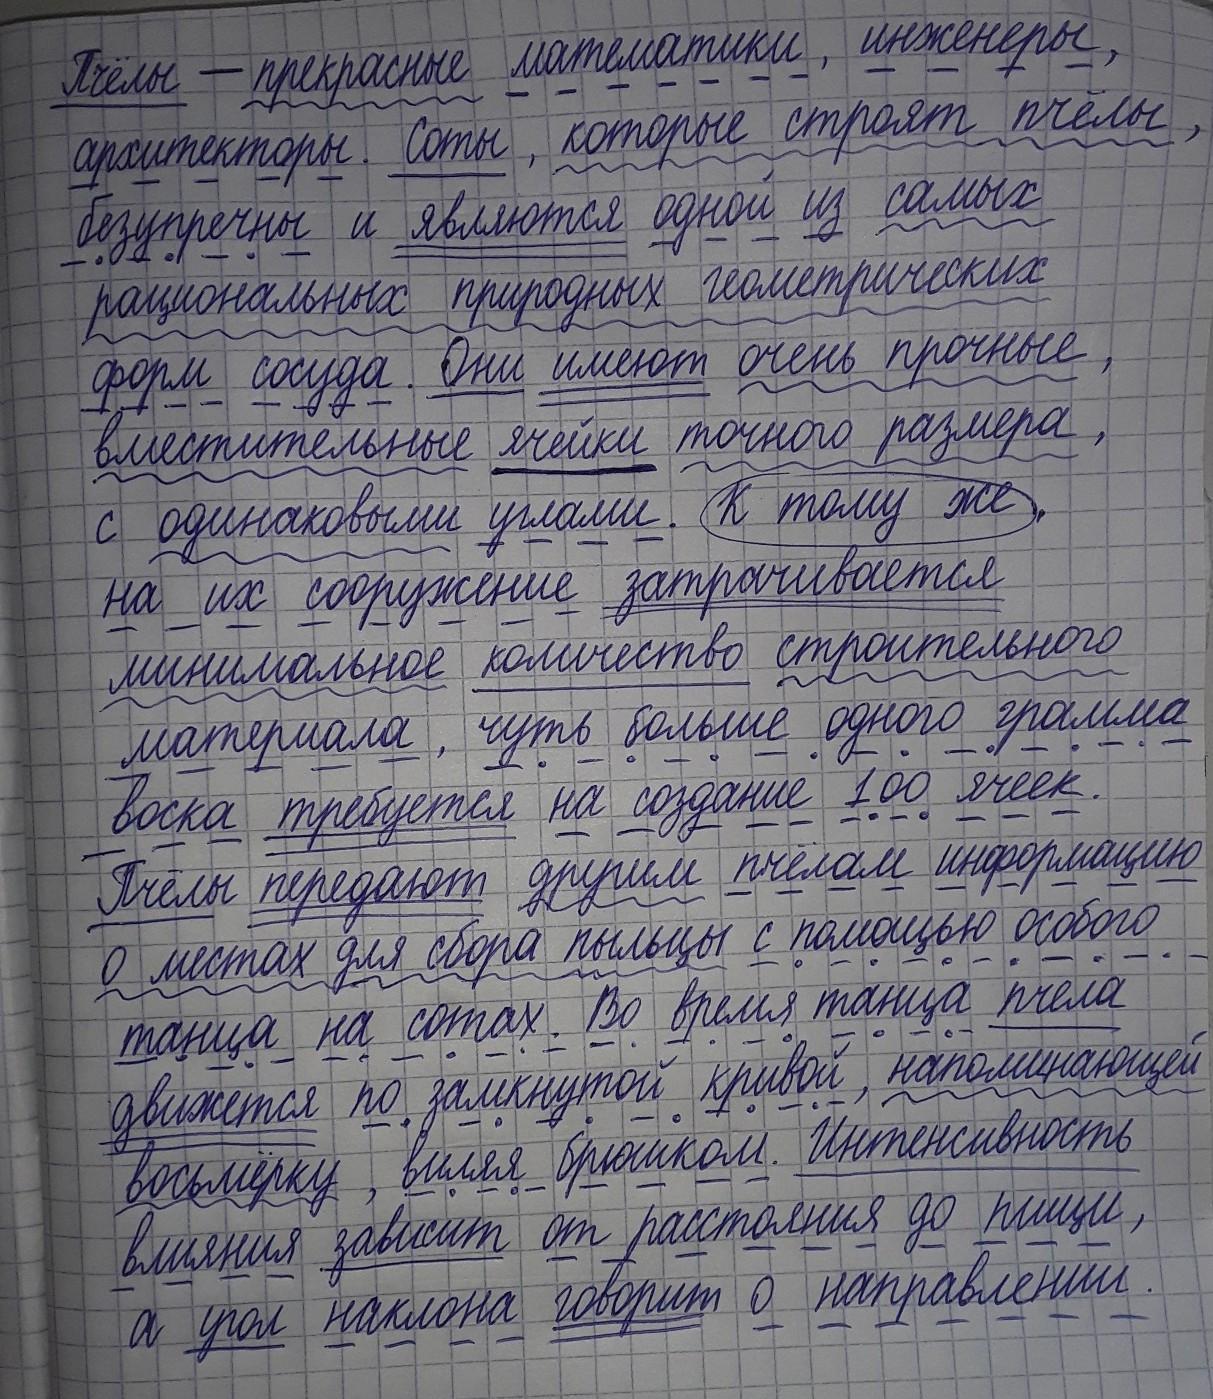 Пчёлы — прекрасные математики, инженеры,
архитекторы. Соты, которые строят пчёлы,
безупречны и являются одной из самых
рациональных природных геометрических
форм сосуда. Они имеют очень прочные,
вместительные ячейки точного размера,
с одинаковыми углами. К тому же,
на их сооружение затрачивается
минимальное количество строительного
материала, чуть больше одного грамма
воска требуется на создание 100 ячеек.
Пчёлы передают другим пчёлам информацию
о местах для сбора пыльцы с помощью особого
танца на сотах. Во время танца пчела
движется по замкнутой кривой, напоминающей
восьмёрку, виляя брюшком. Интенсивность
влияния зависит от расстояния до пищи,
а угол наклона говорит о направлении.